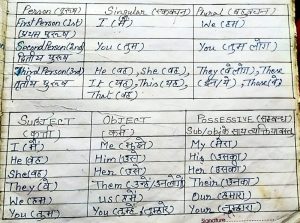 Person (पुरुष) Singular (एकवचन) Plural (बहुवचन)
First Person (1st) I (मैं) We (हम)
(प्रथम पुरुष)
Second Person (2nd) You (तुम) You (तुम लोग)
द्वितीय पुरुष
Third Person (3rd) He (वह), She (वह), They (वे लोग), These
तृतीय पुरुष It (वह), This (यह) (इन/ये) Those (वे)
That (वह)
SUBJECT OBJECT POSSESSIVE (सम्बन्ध)
(कर्ता) (कर्म) Sub/obj के साथ
I (मैं) Me (मुझे) My (मेरा)
He (वह) Him (उसे) His (उसका)
She (वह) Her (उसे) Her (उसका)
They (वे) Them (उन्हें/उनको) Their (उनका)
We (हम) us (हमें) Our (हमारा)
You (तुम) You (तुम्हें/तुमको) Your (तुम्हारा)
Signature